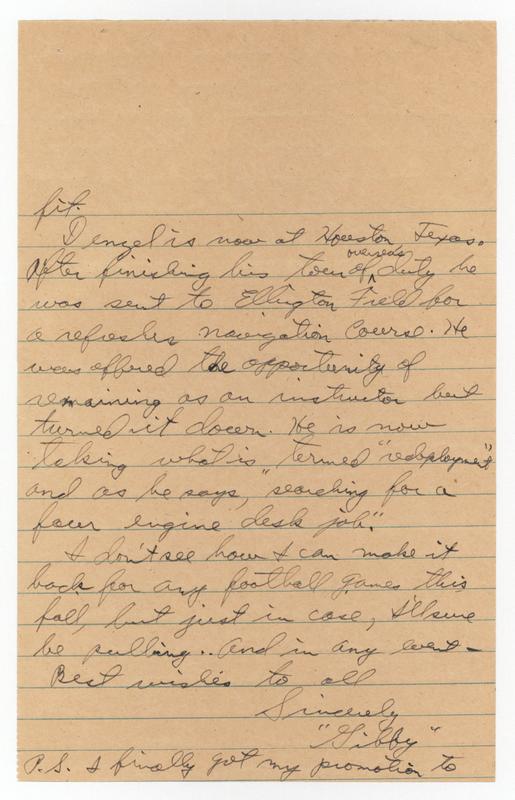 fit.
Denzel is now at Houston Texas.
After finishing his tour of overseas duty he
was sent to Ellington Field for
a refresher navigation course. He
was offered the opportunity of
remaining as an instructor but
turned it down. He is now
taking what is termed "redeployment"
and as he says, "searching for a
four engine desk job."
I don't see how I can make it
back for any football games this
fall, but just in case, I'll sure
be pulling.. And in any event –
Best wishes to all
Sincerely
"Gibby"
P.S. I finally got my promotion to